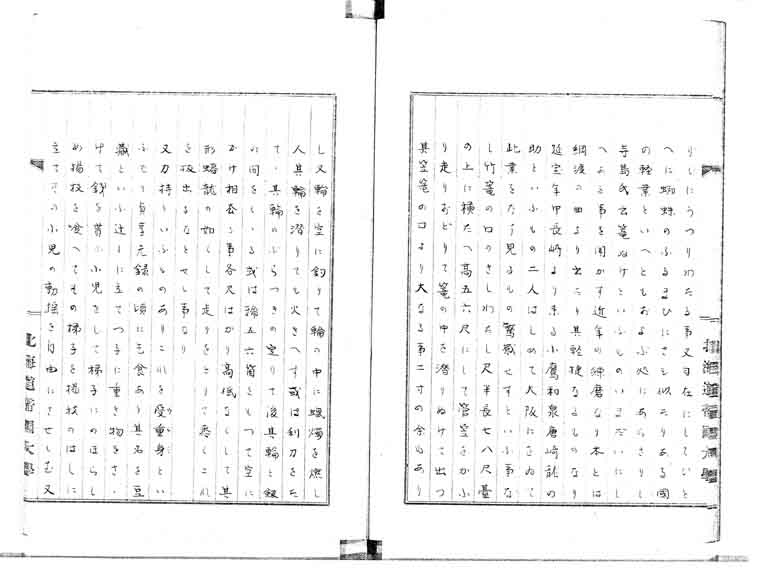 りしにうつりわたる事又自在にしていと
へに蜘蛛のふるまひにさも似たりある国
の軽業といへともおよふ処にあらさりし
寺島氏云篭ぬけといふものいまだいにし
へよき事を聞かす近年の練磨なり本とは
綱渡の曲より出たり其軽捷なるものなり
延宝年中長崎より来る小鷹和泉唐崎龍の
助といふもの二人はしめて大阪にをゐて
此業をなす見るもの驚感せすといふ事な
し竹篭の口のさしわたし尺半長七八尺臺
の上に横たへ高五六尺にして管笠をかふ
り走りおどりて篭の中を潜りぬけて出つ
其笠篭の口より大なる事二寸の余もあり
し又輪を空に釣りて輪の中に蝋燭を燃し
人其輪を潜りても火きへす或は利刀をた
て其輪のぶらつきの定りて後其輪と釼
の間をくゝる或は操五六箇をもつて空に
かけ相去る事各尺はかり高低なくして其
形蟠龍の如くして走りをとりて悉くこれ
を抜出るなとせし事なり
又刀持といふものありこれを受重身とい
ふそ貞享元録の頃に乞食あり其名を豆
蔵といふ辻に立てつ子に重き物をさゝ
けて銭を貰ふ小児をして梯子にのほらし
め楊枝を喰へてもの梯子を楊枝のはしに
立てその小児の動揺を自由にさせしむ又
北海道帝國大學